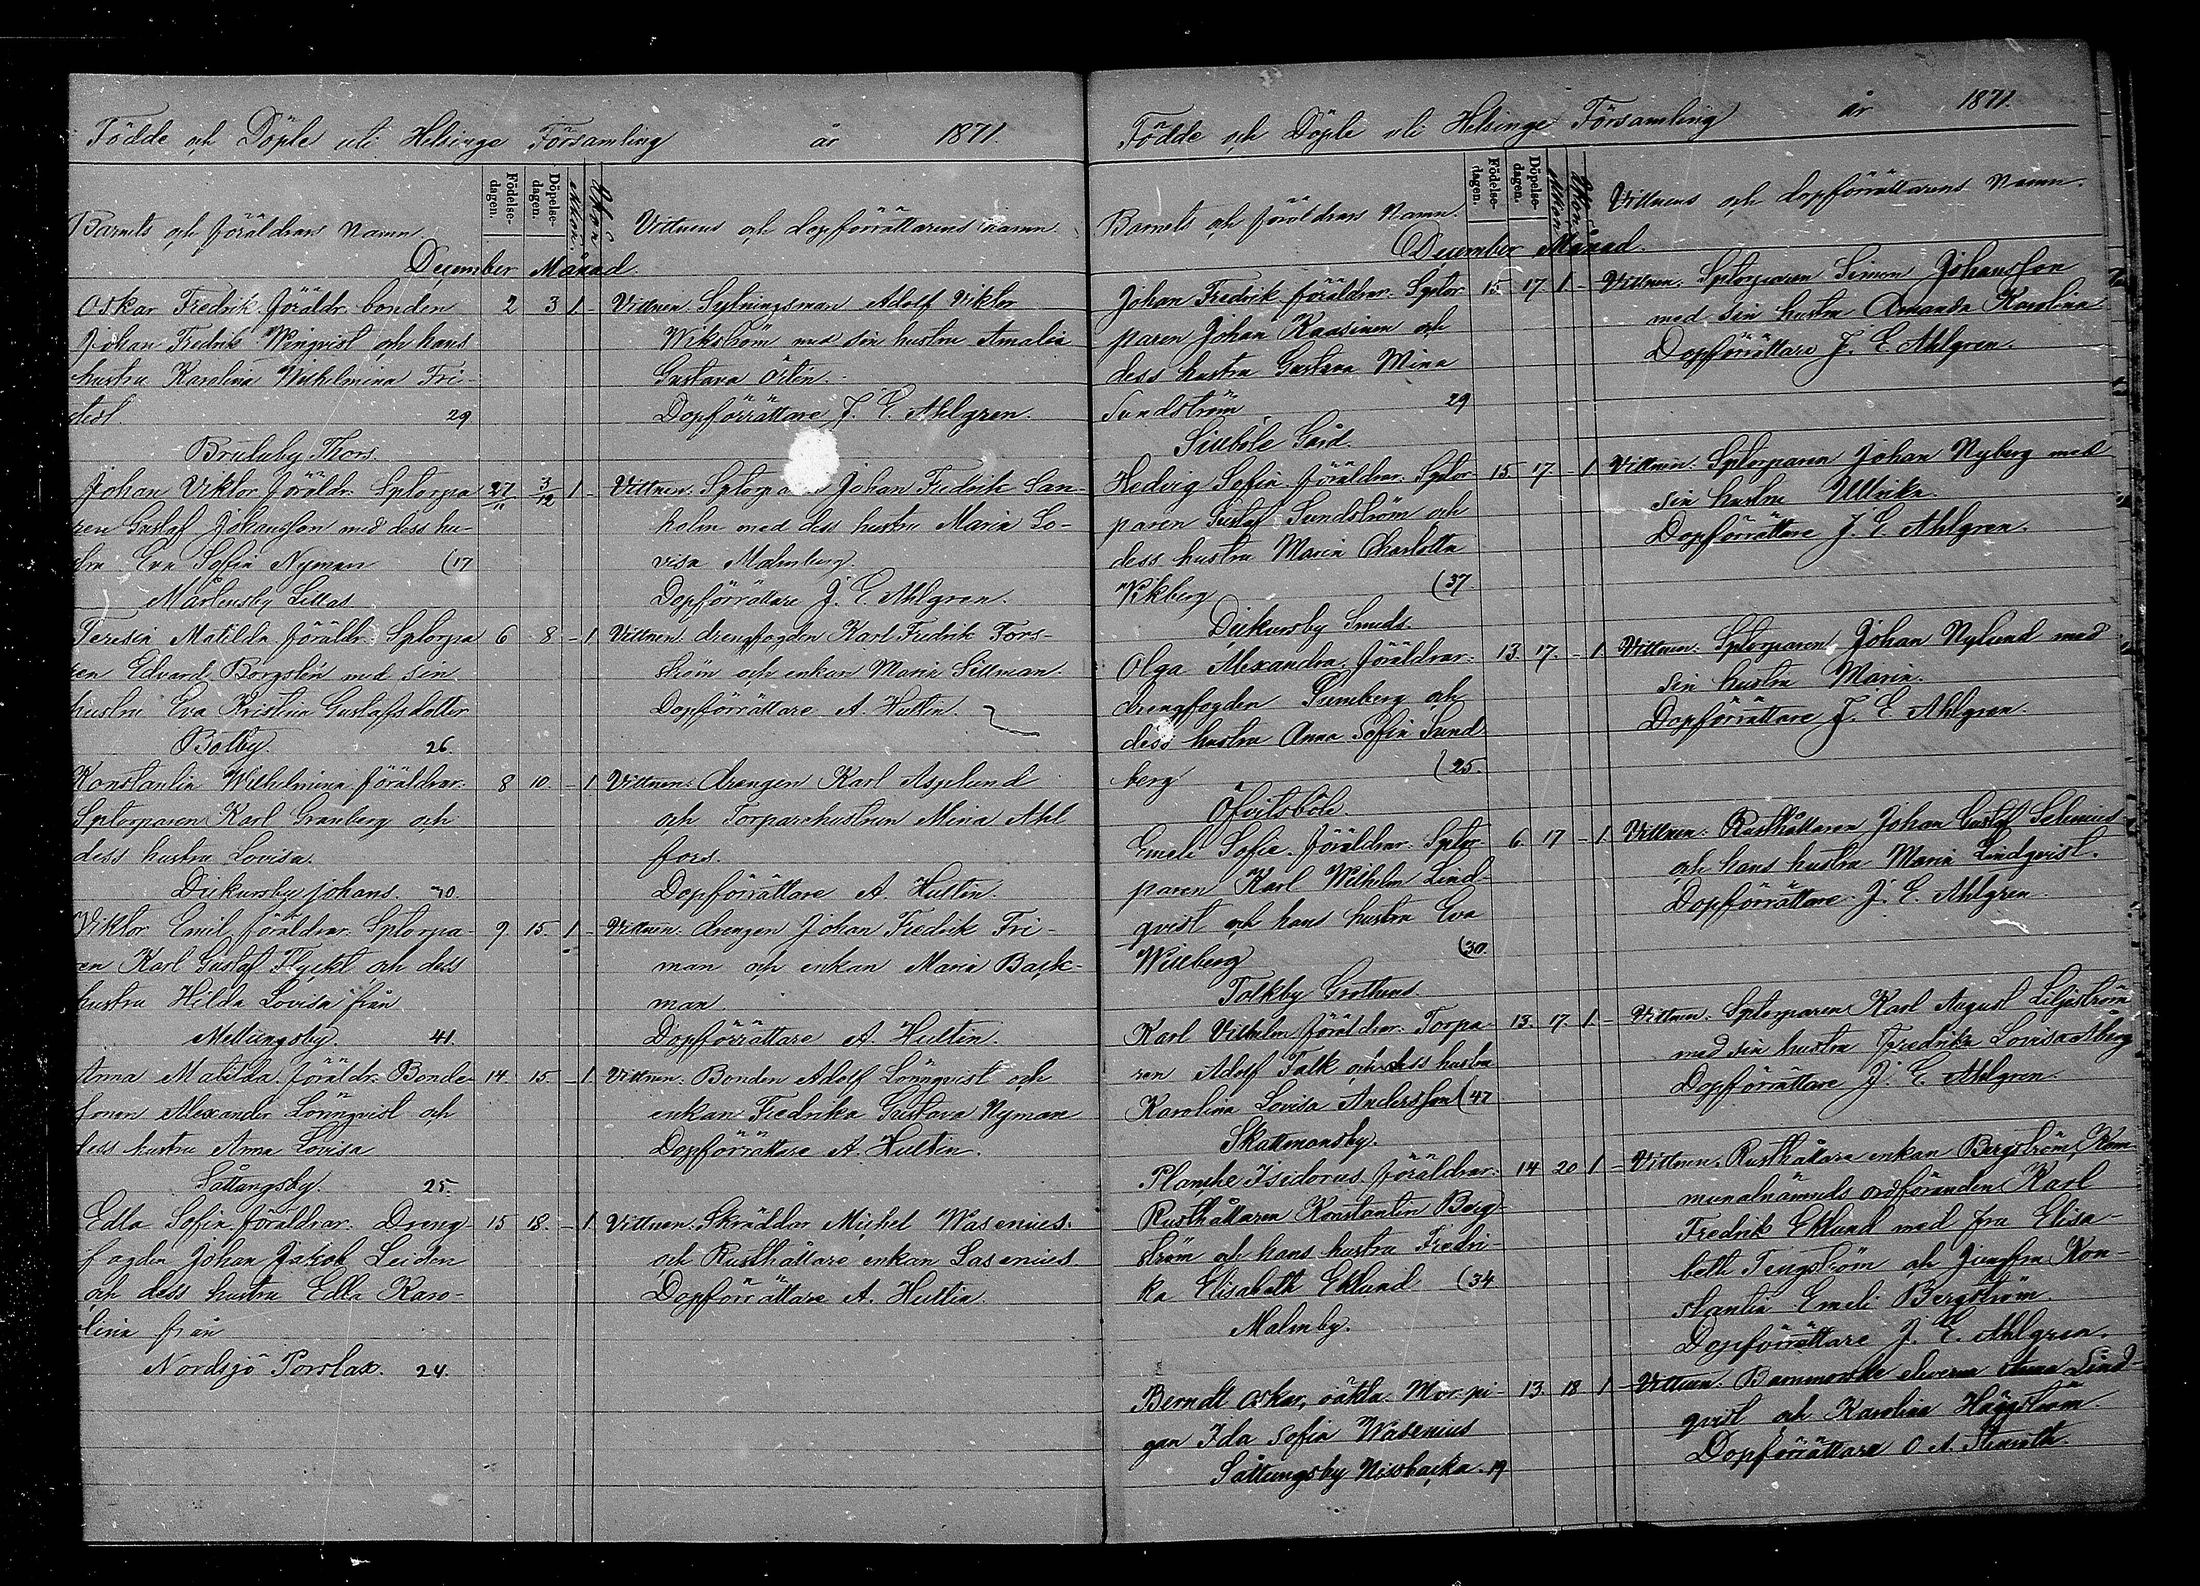 Födde och Döpte uti Helsinge Församling år 1871.
Barnets och föräldrars Namn.
Födelse-dagen.
Döpelse-dagen.
Mkön.
Qkön.
Vittnens och dopförrättarens namn.
December Månad.
Oskar Fredrik. föräldr. bonden 2 3 1 -
Johan Fredrik Winqvist och hans
hustru Karolina Wilhelmina Fri-
29
Vittnen. Sytningsman Adolf Viktor
Wikström med sin hustru Amalia
Gustava
Dopförrättare J. E. Ahlgren.
Johan Viktor föräldr. Sptorpa 27/11 3/12 1 -
ren Gustaf Johansson med dess hu-
stru Eva Sofia Nyman (17
Mårtensby Lillas
Vittnen. Johan Fredrik San-
holm med dess hustru Maria Lo-
visa Malmberg.
Dopförrättare J. E. Ahlgren.
Teresia Matilda föräldr. Sptorpa 6 8 - 1
ren Edvard Borgstén med sin
hustru Eva Kristina Gustafsdotter
Bolby. 26.
Vittnen. drengfogden Karl Fredrik Fors-
ström och enkan Maria Sittman.
Dopförrättare A. Hultin.
Konstantia Wilhelmina föräldrar: 8 10. - 1
Sptorparen Karl Granberg och
dess hustru Lovisa.
Dickursby johans. 40.
Vittnen: drengen Karl Asplund
och Torparehustrun Mina Ahl
fors.
Dopförrättare A. Hultin.
Viktor Emil föräldrar. Sptorpa- 9. 15. 1 -
ren Karl Gustaf Flyckt och dess
hustru Hilda Lovisa från
Mellungsby. 41.
Vittnen: drengen Johan Fredrik Fri-
man och enkan Maria Back-
man.
Dopförrättare A. Hultin.
Anna Matilda. föräldr. Bonde- 14. 15. - 1.
sonen Alexander Lönnqvist och
dess hustru Anna Lovisa
Sottungsby. 25.
Vittnen: Bonden Adolf Lönnqvist och
enkan Fredrika Gustava Nyman
Dopförrättare A. Hultin.
Edla Sofia föräldrar. Dreng- 15 18. - 1.
fogden Johan Jakob Leiden
och dess hustru Edla Karo-
lina från
Nordsjö Porslax. 24.
Vittnen. Skräddar Michel Wasenius.
och Rusthållare enkan Sasenius
Dopförrättare A. Hultin.
Födde och Döpte uti Helsinge Församling år 1871.
Barnets och föräldrars Namn.
Födelse-dagen.
Döpelse-dagen.
Mkön.
Qkön.
Vittnens och dopförrättarens Namn.
December Månad.
Johan Fredrik föräldrar. Sptor 15 17. 1 -
paren Johan Kaasinen och
dess hustru Gustava Mina
Sundström 29
Sillböle Gård.
Vittnen. Sptorparen Simon Johansson
med sin hustru Amanda Karolina
Dopförrättare J. E. Ahlgren.
Hedvig Sofia föräldrar. Sptor- 15. 17. - 1
paren Gustaf Sundström och
dess hustru Maria Charlotta
Vikberg (37.
Dickursby Smeds.
Vittnen. Sptorparen Johan Nyberg med
sin hustru Ullrika.
Dopförrättare J. E. Ahlgren.
Olga Alexandra. föräldrar: 13. 17. - 1
drengfogden och
dess hustru Anna Sofia Sund
berg (25.
Öfvitsböle.
Vittnen: Sptorparen Johan Nylund med
sin hustru Maria.
Dopförrättare J. E. Ahlgren.
Emeli Sofia. föräldrar. Sptor 6. 17 - 1
paren Karl Wilhelm Lind-
qvist och hans hustru Eva
Willberg (30.
Tolkby Grothens
Vittnen: Rusthållaren Johan Gustaf Selenius
och hans hustru Maria Lindqvist.
Dopförrättare J. E. Ahlgren.
Karl Vilhelm föräldrar: Torpa- 13. 17. 1 -
ren Adolf Falk och dess hustru
Karolina Lovisa Andersson (47
Skattmansby.
Vittnen. Sptorparen Karl August Liljeström
med sin hustru Fredrika Lovisa Åberg
Dopförrättare J. E. Ahlgren.
Planche Isidorus föräldrar: 14 20 1 -
Rusthållaren Konstantin Berg-
ström och hans hustru Fredri-
ka Elisabeth Eklund (34.
Malmby.
Vittnen. Rusthållare enkan Bergström, Kom-
munalnämnds ordföranden Karl
Fredrik Eklund med fru Elisa-
beth Tengström och Jungfru Kon-
stantia Emeli Bergström.
Dopförrättare J. E. Ahlgren.
Berndt Oskar, oäkta. Mor. pi- 13. 18 1 -
gan Ida Sofia Wasenius
Sottungsby Nissbacka. 19
Vittnen. Barnmorske eleverne Anna Lind-
qvist och Karolina Häggström
Dopförrättare O. A. Stenroth.